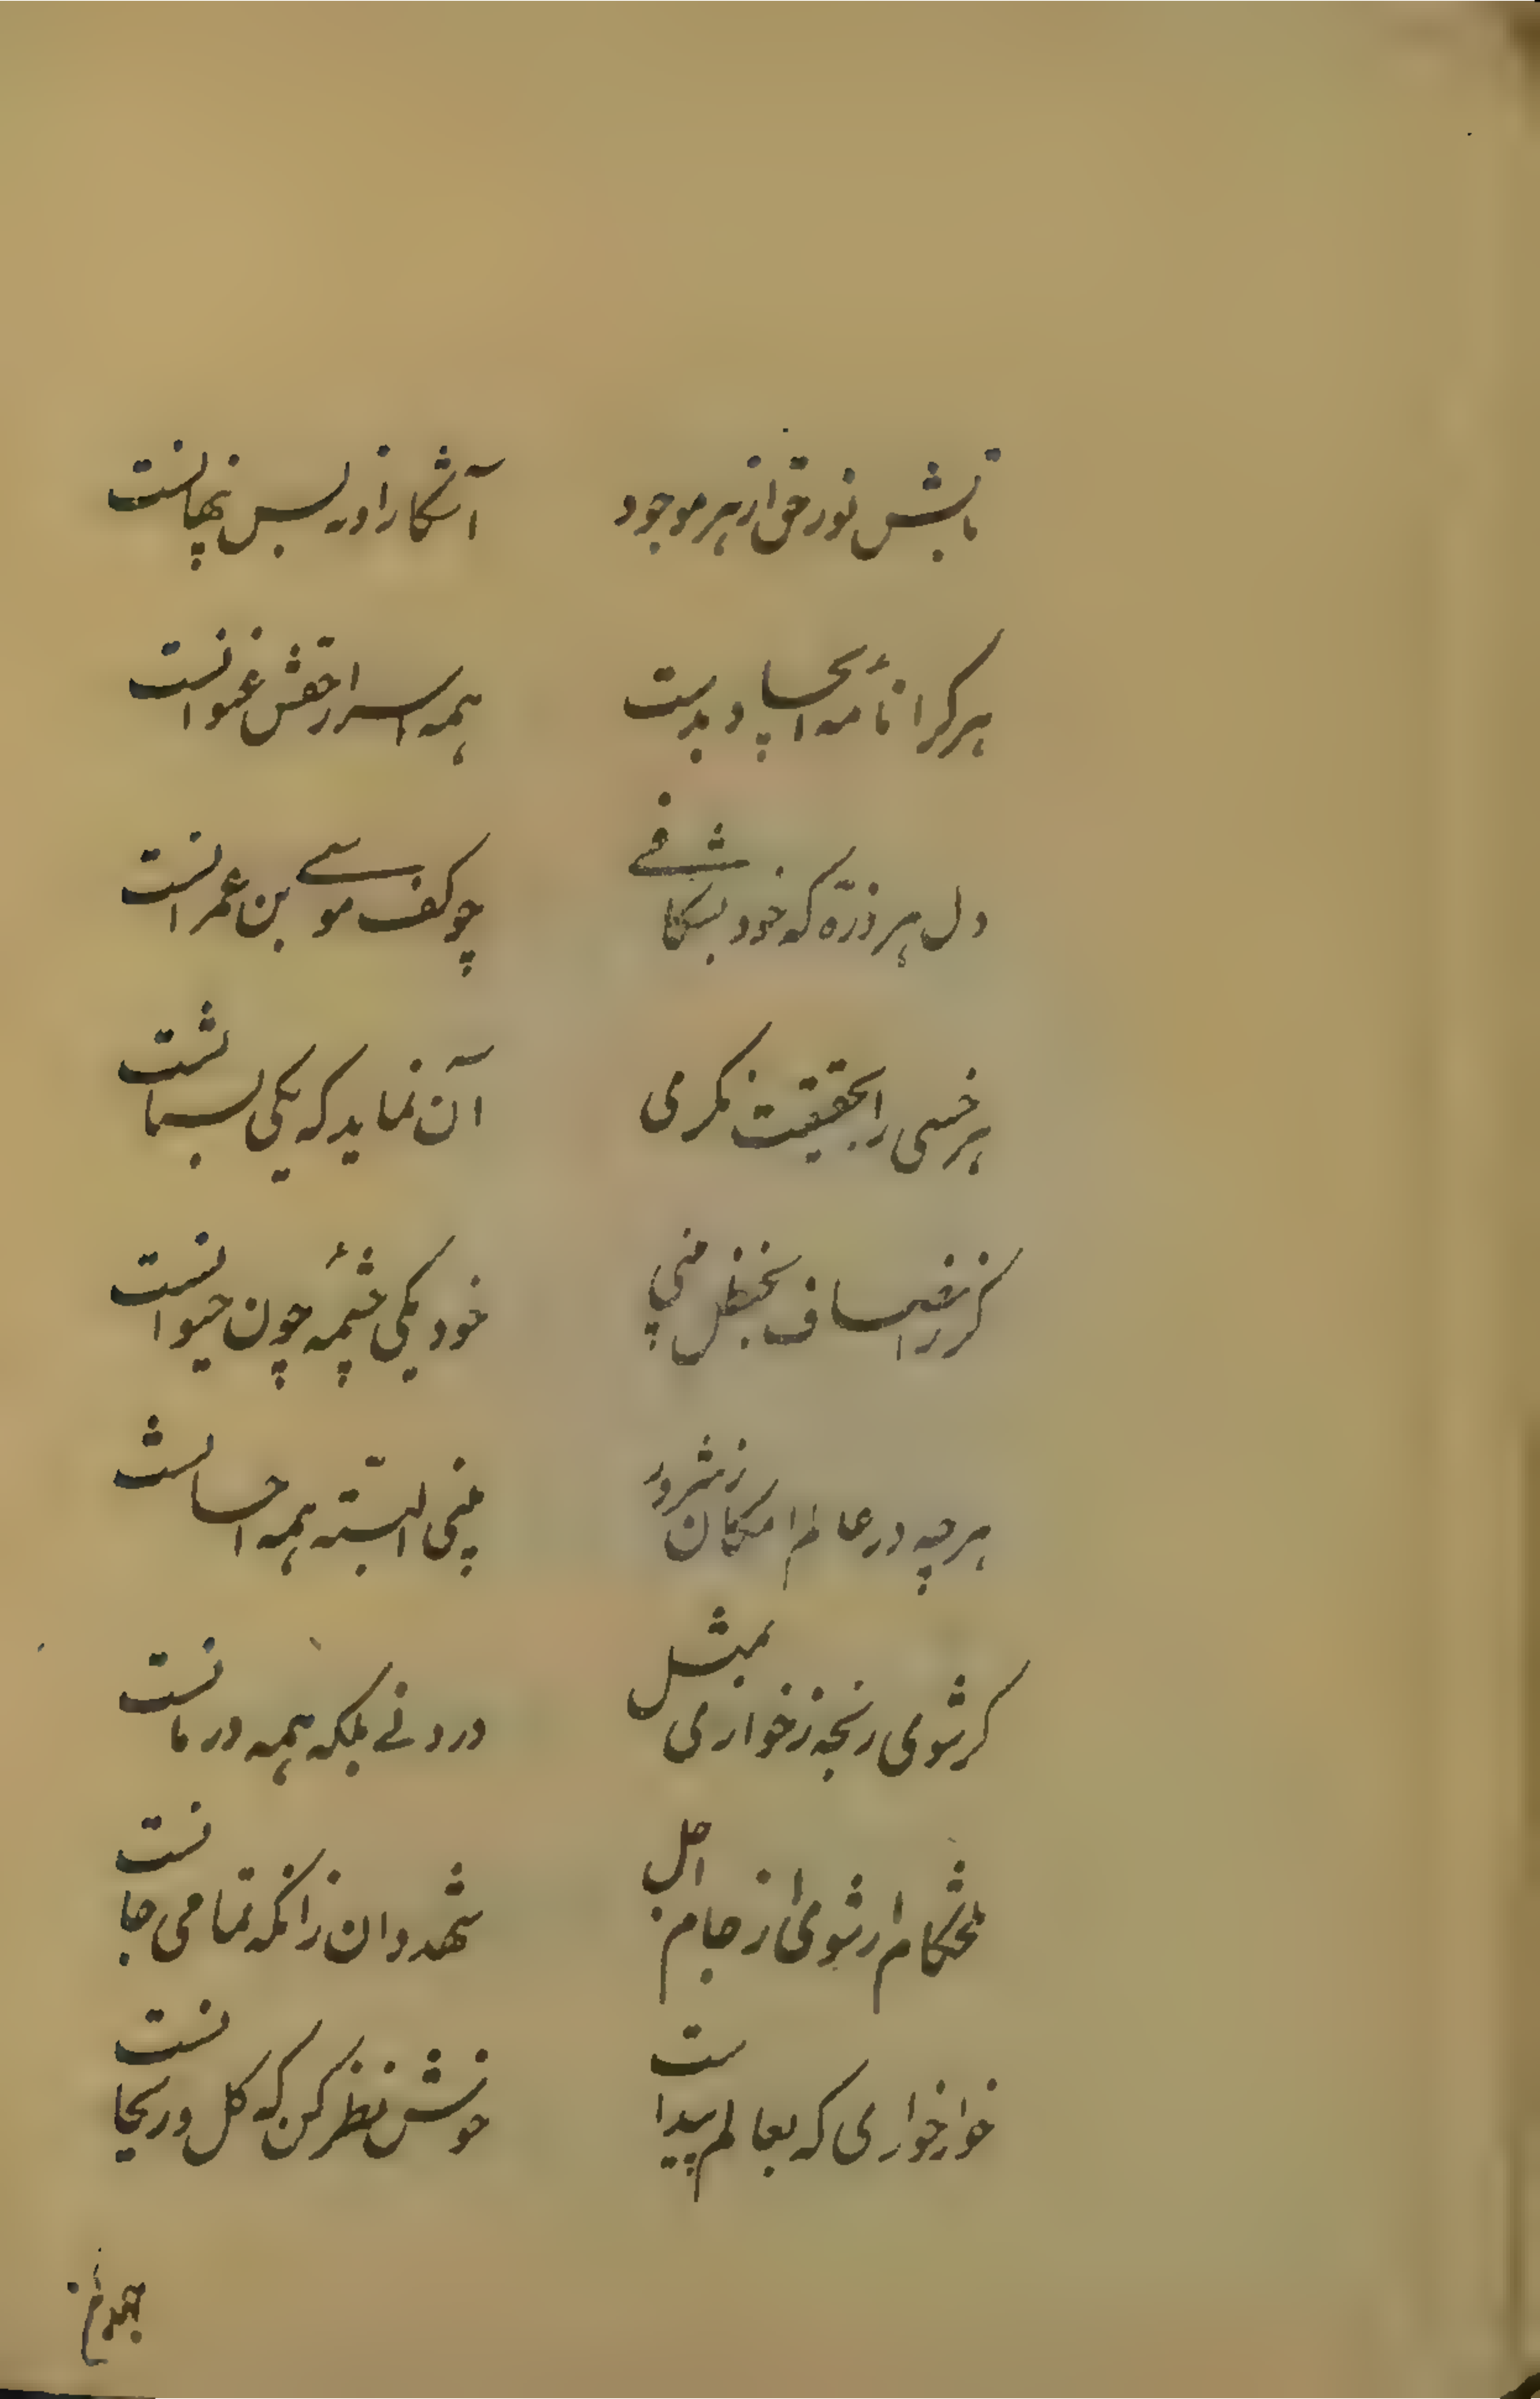 تابش نور حق از هر موجود
آشکارا و به بس نهانست
هر کرا نامهٔ ایجاد بدست
همه اسرار حقش عنوانست
دل هر ذرّه که خود بشکافی
چو کف موسے بن عمرانست
هر خسی را بحقیقت نکری
آن نماید که یکی بستانست
کر ز انصاف بحنظل بینی
خود یکی چشمهٔ چون حیوانست
هر چه در عالم امکان ز شرور
بینی البتّه همه احسانست
کر شوی رنجه ز خواری بمثل
درد نے بلکه همه درمانست
تلخکام ار شوی از جام اجل
شهد دان زانکه تمامی جانست
خوار خواری که بعالم پیداست
خوش نظر کن که کل و ریحانست